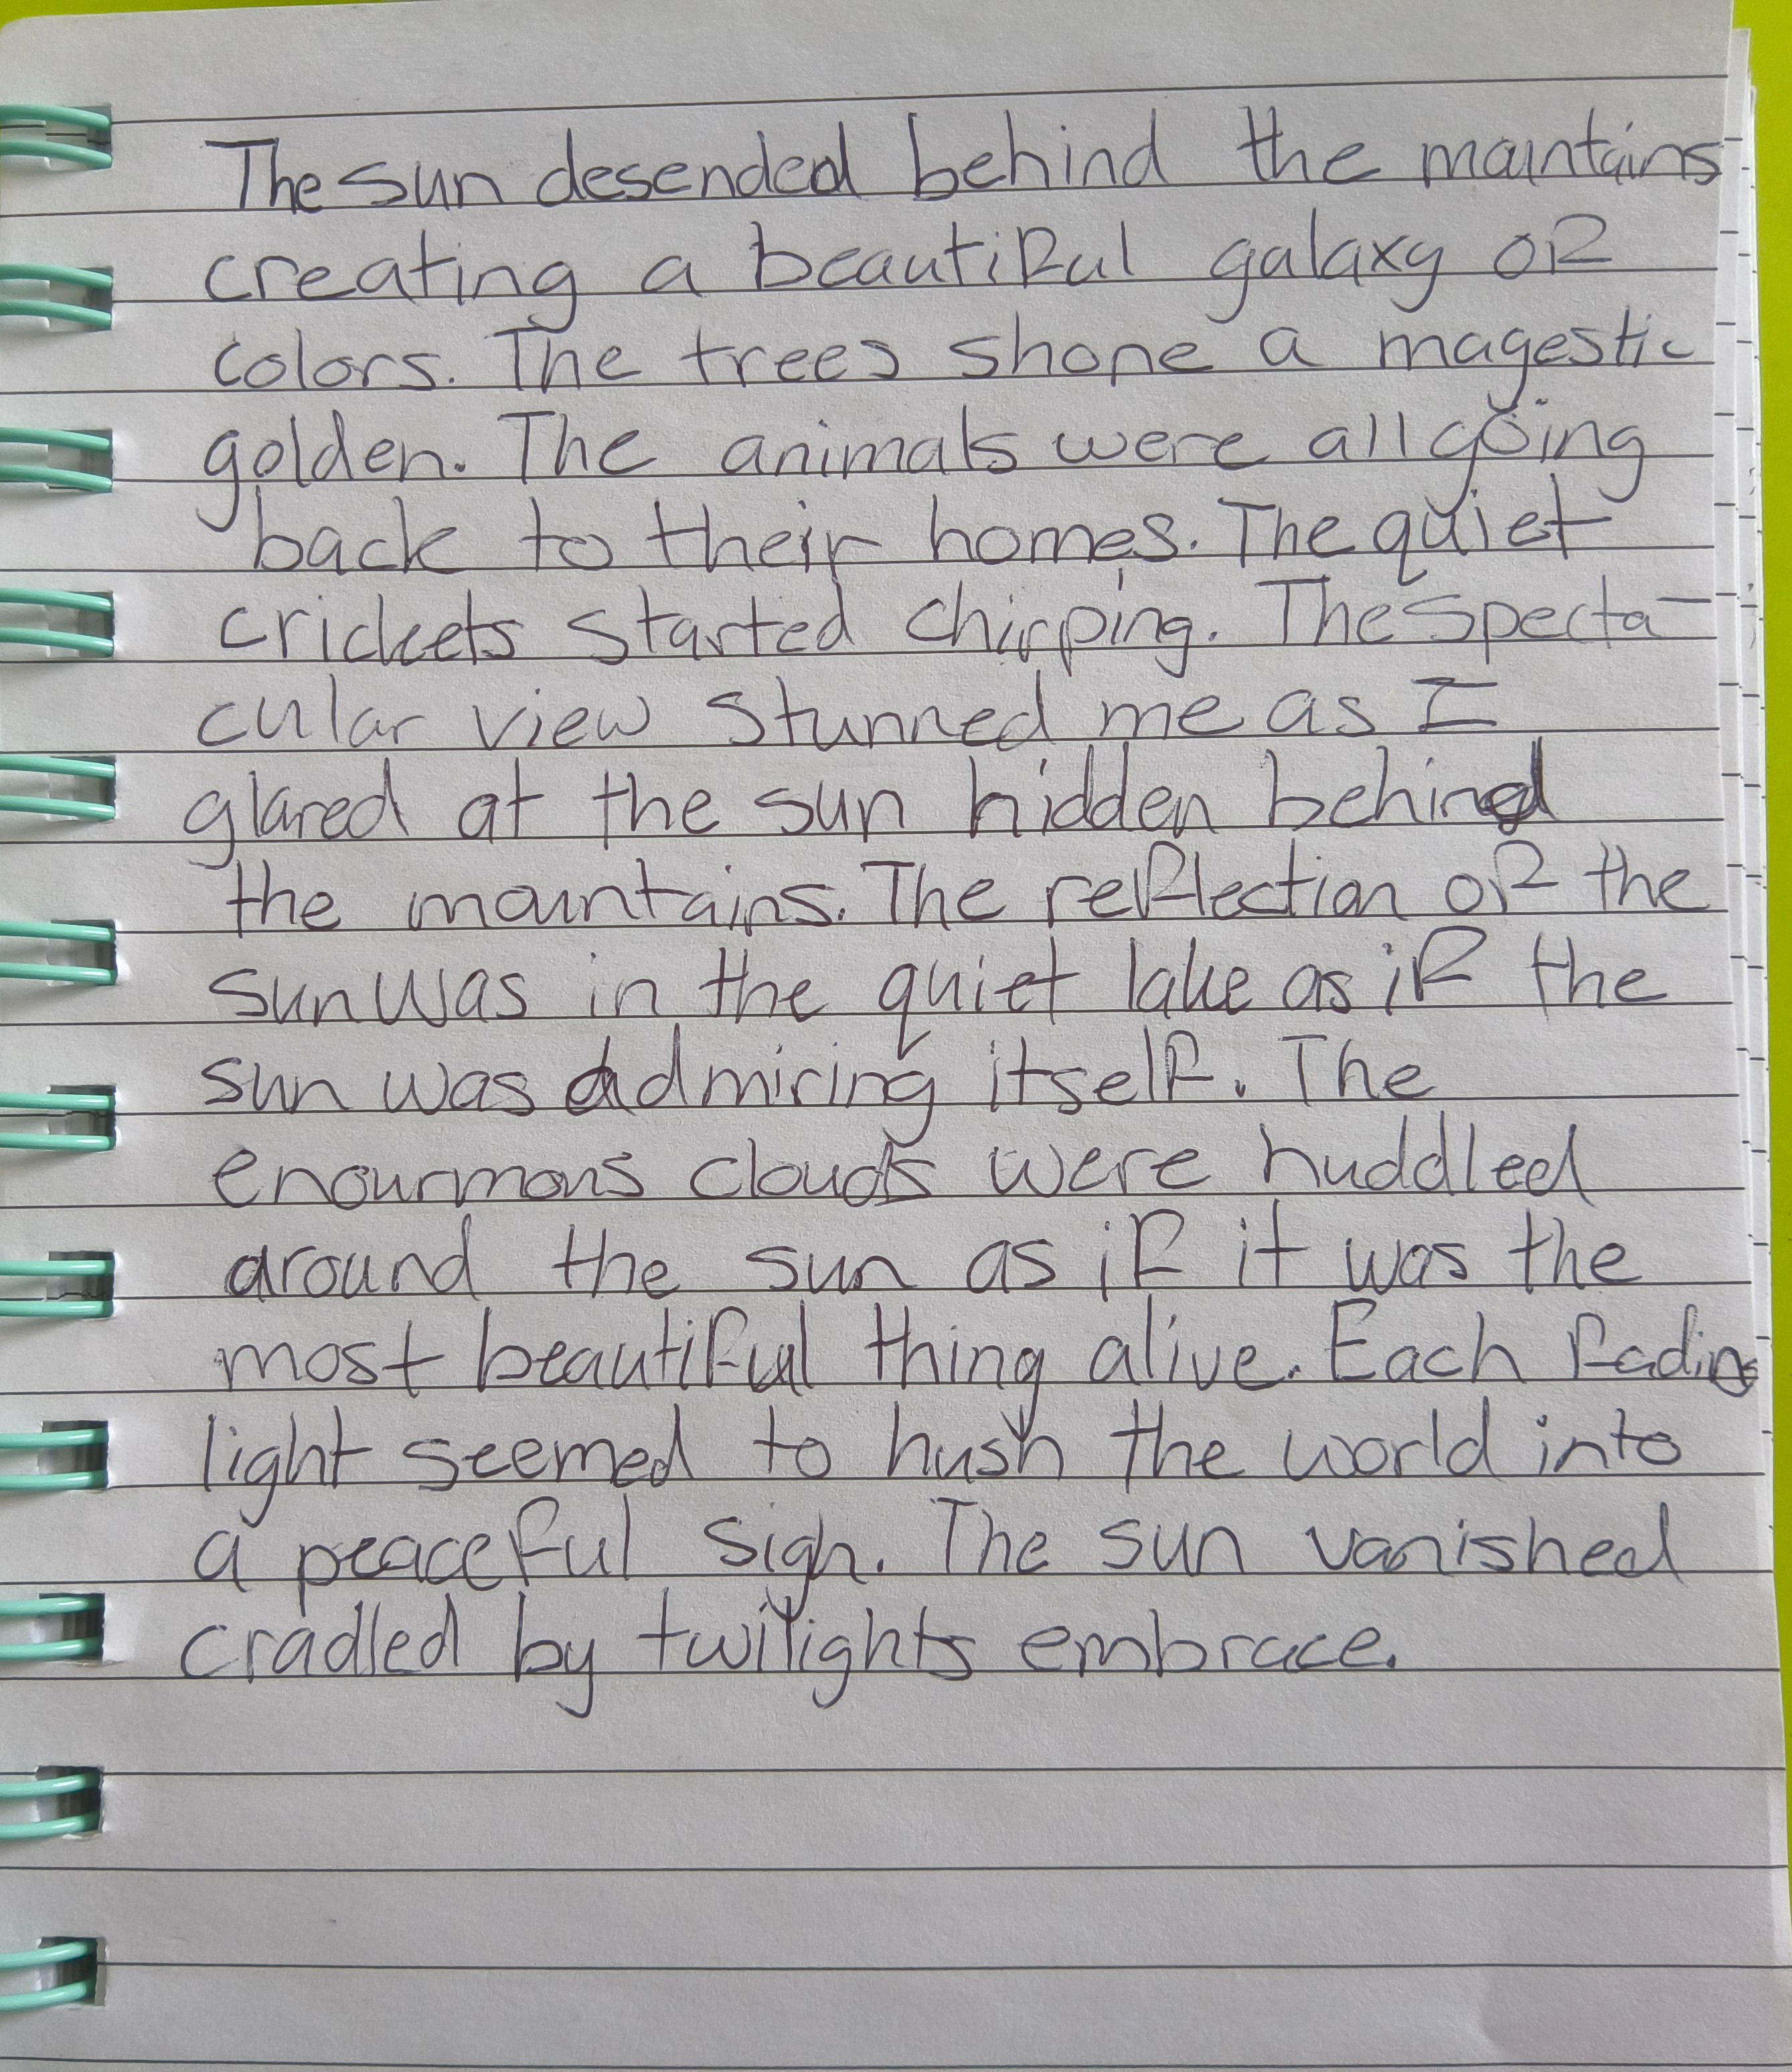 The sun desended behind the mauntains
creating a beautiful galaxy of
colors. The trees shone a magestic
golden. The animals were all going
back to their homes. The quiet
crickets started chirping. The specta-
cular view stunned me as I
glared at the sun hidden behind
the mountains. The reflection of the
sun was in the quiet lake as if the
sun was admiring itself. The
enourmous clouds were huddled
around the sun as if it was the
most beautiful thing alive. Each fading
light seemed to hush the world into
a peaceful sigh. The sun vanished
cradled by twilights embrace.